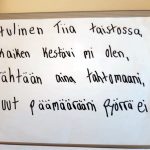 tulinen Tiia taistossa,
kaiken kestävi mi olen,
tähtään aina tahtomaani,
uut päämäärääni pyörrä ei